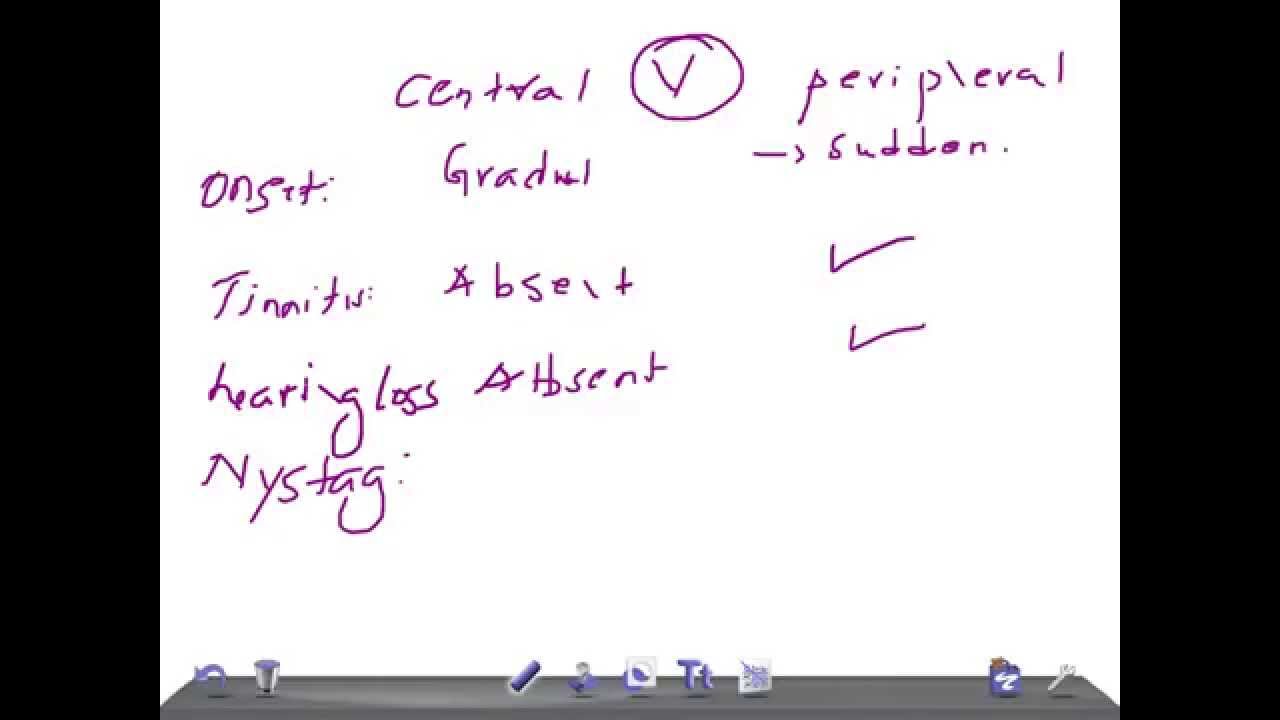 Central V peripheral
Onset: Gradual → sudden.
Tinnitus: Absent ✓
hearing loss Absent ✓
Nystag:
Tt